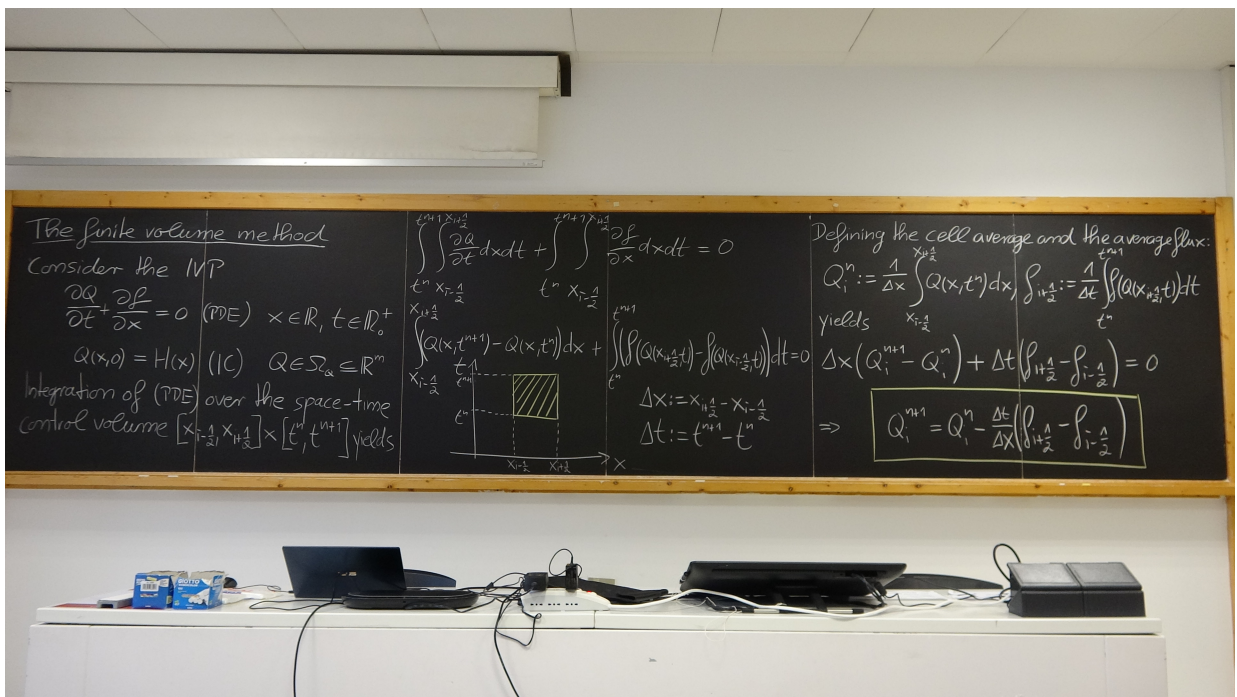 The finite volume method
Consider the IVP
∂Q/∂t + ∂f/∂x = 0 (PDE) x ∈ ℝ, t ∈ ℝ₀⁺
Q(x,0) = H(x) (IC) Q ∈ Ω_Q ⊆ ℝ^m
Integration of (PDE) over the space-time
control volume [x_{i-1/2}, x_{i+1/2}] x [t^n, t^{n+1}] yields
∫_{t^n}^{t^{n+1}} ∫_{x_{i-1/2}}^{x_{i+1/2}} ∂Q/∂t dxdt + ∫_{t^n}^{t^{n+1}} ∫_{x_{i-1/2}}^{x_{i+1/2}} ∂f/∂x dxdt = 0
∫_{x_{i-1/2}}^{x_{i+1/2}} (Q(x,t^{n+1}) - Q(x,t^n)) dx + ∫_{t^n}^{t^{n+1}} (f(Q(x_{i+1/2},t)) - f(Q(x_{i-1/2},t))) dt = 0
t
t^{n+1}
t^n
x_{i-1/2} x_{i+1/2} x
Δx := x_{i+1/2} - x_{i-1/2}
Δt := t^{n+1} - t^n
Defining the cell average and the average flux:
Q_i^n := 1/Δx ∫_{x_{i-1/2}}^{x_{i+1/2}} Q(x,t^n) dx, f_{i+1/2} := 1/Δt ∫_{t^n}^{t^{n+1}} f(Q(x_{i+1/2},t)) dt
yields
Δx (Q_i^{n+1} - Q_i^n) + Δt (f_{i+1/2} - f_{i-1/2}) = 0
⇒ Q_i^{n+1} = Q_i^n - Δt/Δx (f_{i+1/2} - f_{i-1/2})
GIOTTO